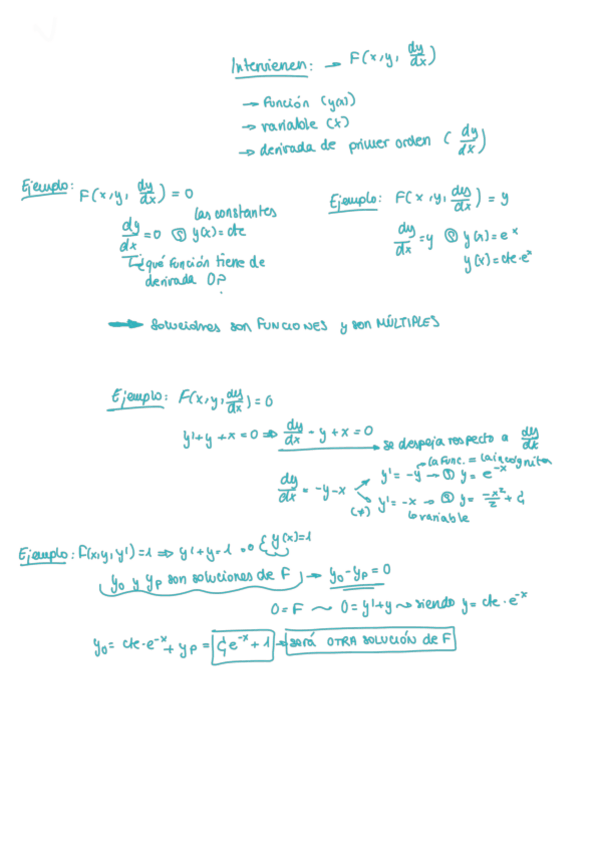 Intervienen: → F(x,y, dy/dx)
→ Función (y(x))
→ variable (x)
→ derivada de primer orden (dy/dx)
Ejemplo: F(x,y, dy/dx) = 0
las constantes
dy/dx = 0 y(x) = cte
¿qué función tiene de
derivada 0?
Ejemplo: F(x,y, dy/dx) = y
dy/dx = y y(x) = e^x
y(x) = cte·e^x
→ Soluciones son FUNCIONES y son MÚLTIPLES
Ejemplo: F(x,y, dy/dx) = 0
y'+y+x=0 ⇒ dy/dx - y + x = 0
→ se despeja respecto a dy/dx
→ la func. = la incógnita
dy/dx = -y-x
y' = -y → ① y = e^-x
(*) y' = -x → ② y = -x²/2 + C
variable
Ejemplo: F(x,y,y') = 1 ⇒ y'+y=1 { y(x)=1
y₀ y yp son soluciones de F → y₀-yp = 0
0 = F ~ 0 = y'+y ~ siendo y = cte·e^-x
y₀ = cte·e^-x + yp = Ce^-x + 1 → será OTRA SOLUCIÓN de F